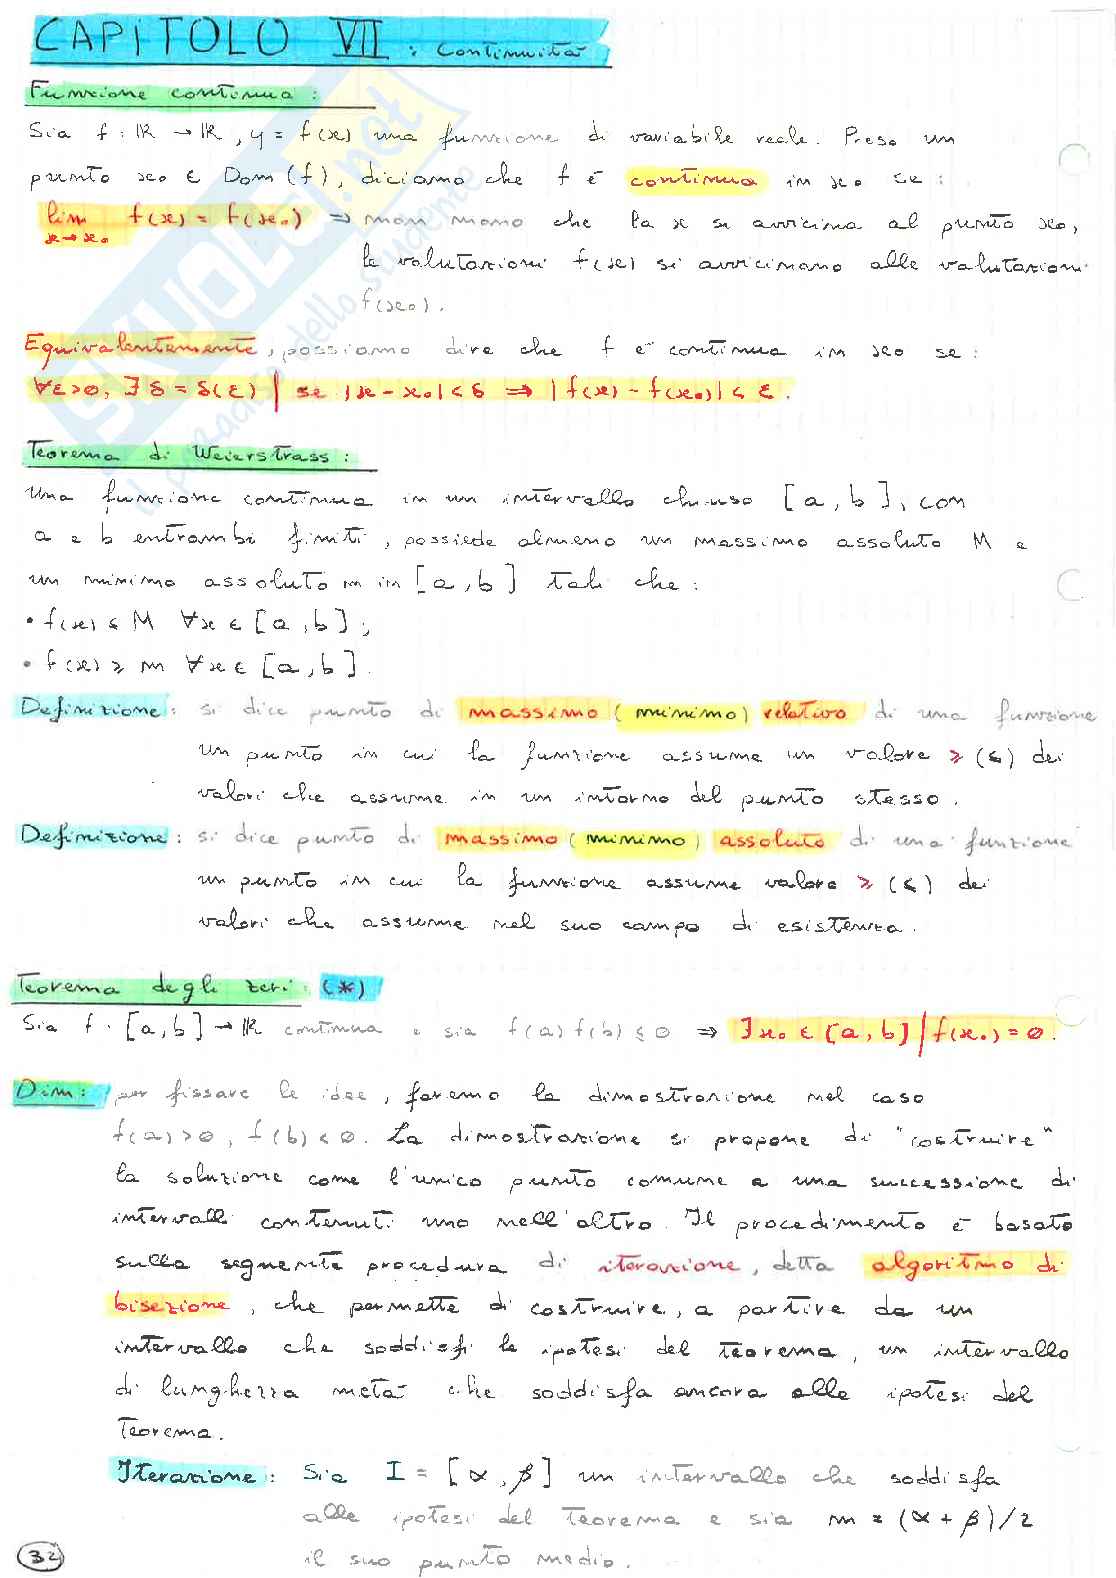 CAPITOLO VII : Continuità
Funzione continua :
Sia f : ℝ → ℝ , y = f(x) una funzione di variabile reale. Preso un
punto x₀ ∈ Dom (f), diciamo che f è continua in x₀ se :
lim f(x) = f(x₀) ⇒ man mano che la x si avvicina al punto x₀,
x→x₀
le valutazioni f(x) si avvicinano alle valutazioni
f(x₀).
Equivalentemente, possiamo dire che f è continua in x₀ se :
∀ε>0, ∃ δ = δ(ε) | se |x - x₀| < δ ⇒ | f(x) - f(x₀)| < ε.
Teorema di Weierstrass :
Una funzione continua in un intervallo chiuso [a, b], con
a e b entrambi finiti, possiede almeno un massimo assoluto M e
un minimo assoluto m in [a, b] tali che :
• f(x) ≤ M ∀x ∈ [a, b] ;
• f(x) ≥ m ∀x ∈ [a, b].
Definizione : si dice punto di massimo (minimo) relativo di una funzione
un punto in cui la funzione assume un valore ≥ (≤) dei
valori che assume in un intorno del punto stesso.
Definizione : si dice punto di massimo (minimo) assoluto di una funzione
un punto in cui la funzione assume valore ≥ (≤) dei
valori che assume nel suo campo di esistenza.
Teorema degli zeri : (*)
Sia f : [a, b] → ℝ continua e sia f(a) f(b) ≤ 0 ⇒ ∃ x₀ ∈ [a, b] | f(x₀) = 0.
Dim : per fissare le idee, faremo la dimostrazione nel caso
f(a) > 0, f(b) < 0. La dimostrazione si propone di "costruire"
la soluzione come l'unico punto comune a una successione di
intervalli contenuti uno nell'altro. Il procedimento è basato
sulla seguente procedura di iterazione, detta algoritmo di
bisezione, che permette di costruire, a partire da un
intervallo che soddisfi le ipotesi del teorema, un intervallo
di lunghezza metà che soddisfa ancora alle ipotesi del
Teorema.
Iterazione : Sia I = [α, β] un intervallo che soddisfa
alle ipotesi del Teorema e sia m = (α + β)/2
il suo punto medio.
32
SKUOLA.net
il paradiso dello studente